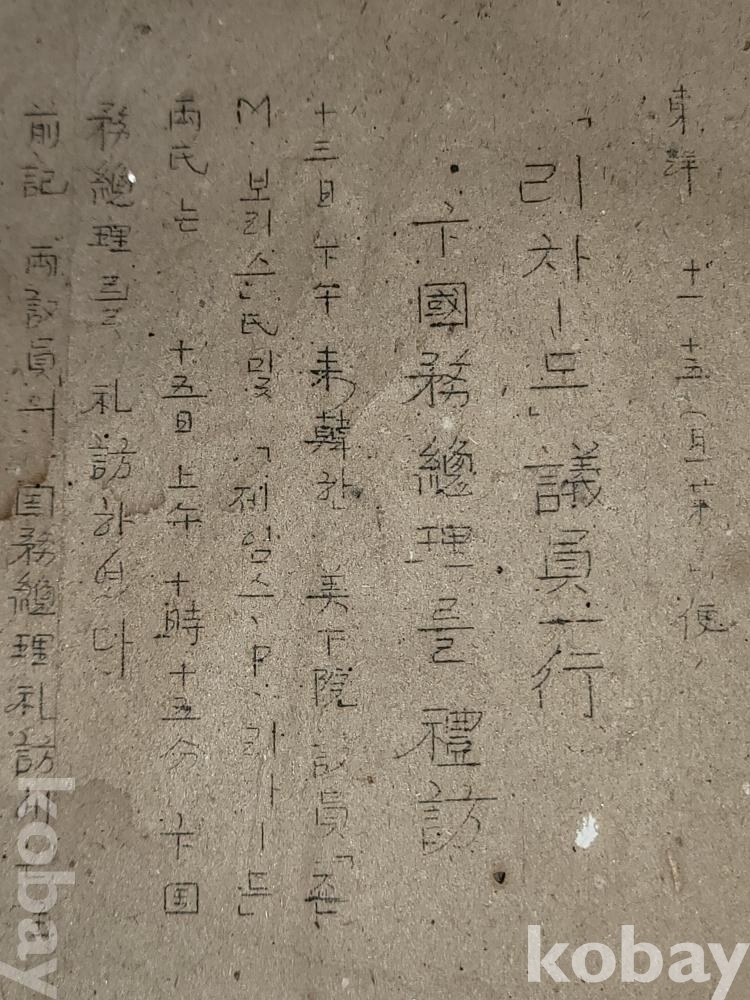 東洋 十一 十五 (月) 第 一 便
「리차ー드」議員一行
卞國務總理를 禮訪
十三日 下午 来韓한 美下院 議員「죤
M・보리슨氏 및 「제임스・P・리차ー드」
両氏는 十五日 上午 十時 十五分 卞国
務總理를 礼訪하였다
前記 両議員의 国務總理 礼訪에
kobay
kobay